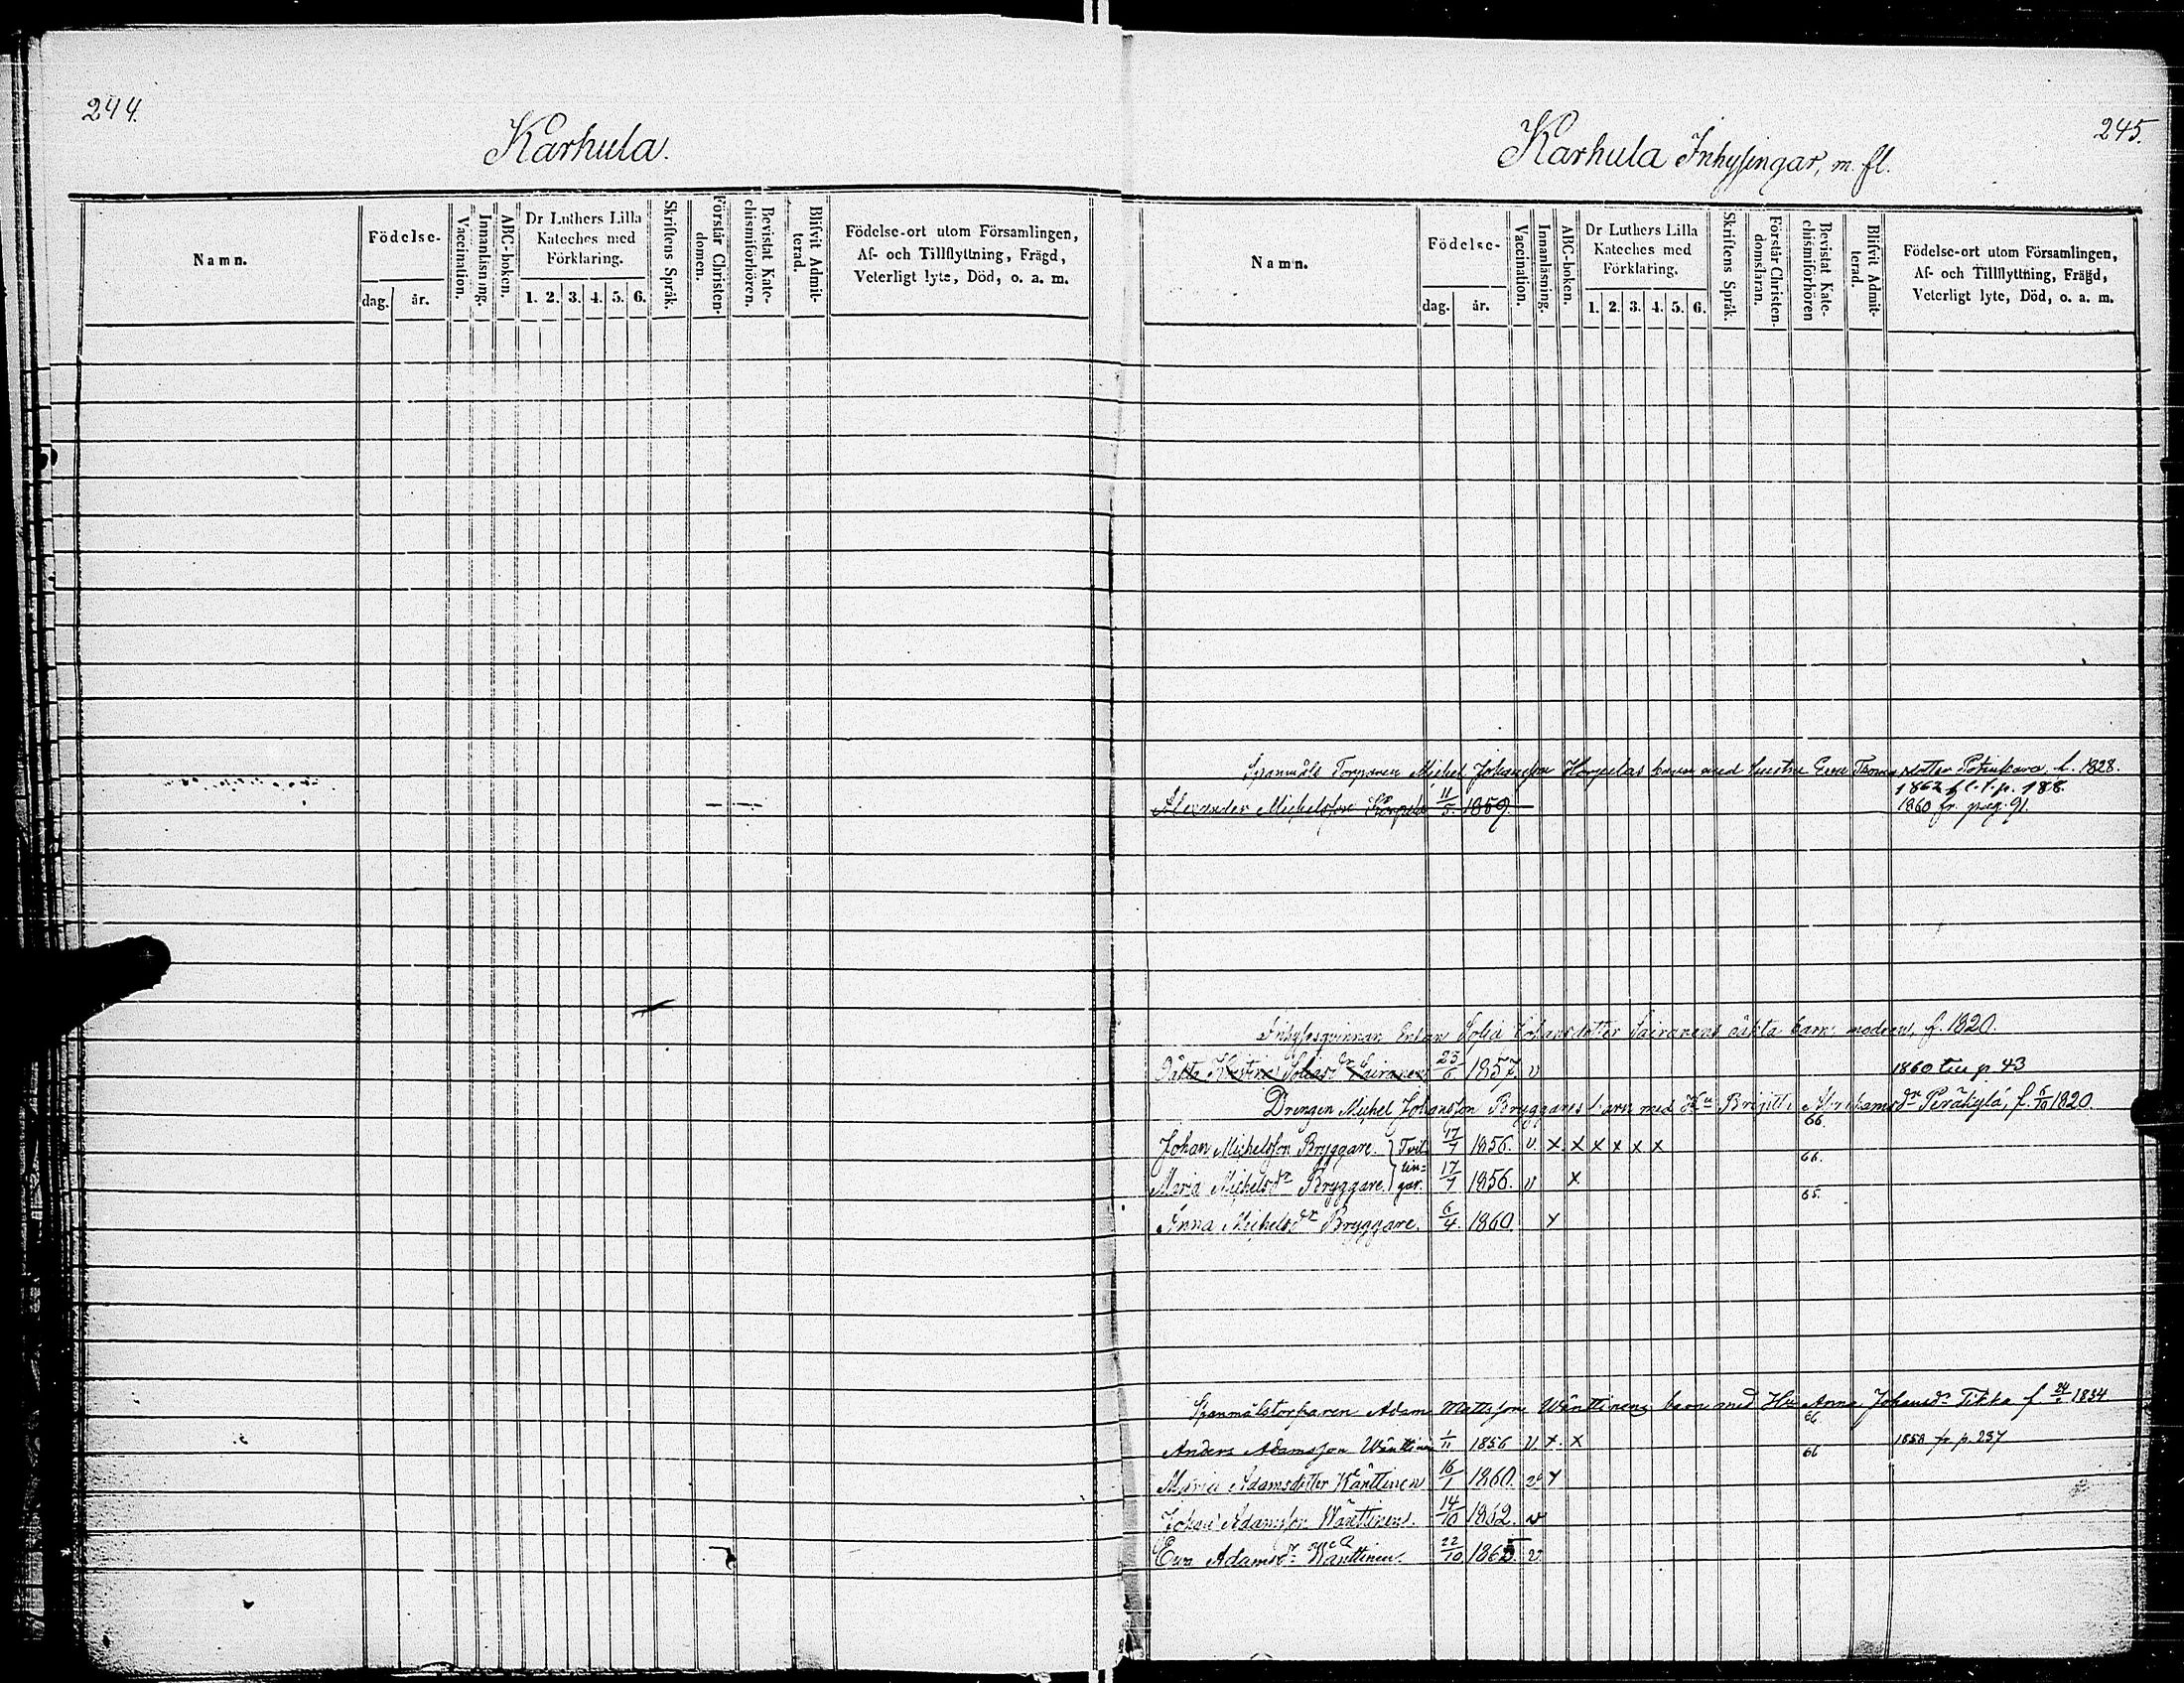 244.
Karhula.
Namn.
Födelse-
dag. år.
Vaccination.
Innanläsning.
ABC-boken.
Dr Luthers Lilla
Kateches med
Förklaring.
1. 2. 3. 4. 5. 6.
Skriftens Språk.
Förstår Christen-
domen.
Bevistat Kate-
chismiförhören.
Blifvit Admit-
terad.
Födelse-ort utom Församlingen,
Af- och Tillflyttning, Frägd,
Veterligt lyte, Död, o. a. m.
245.
Karhula Inhysingar, m. fl.
Namn.
Födelse-
dag. år.
Vaccination.
Innanläsning.
ABC-boken.
Dr Luthers Lilla
Kateches med
Förklaring.
1. 2. 3. 4. 5. 6.
Skriftens Språk.
Förstår Christen-
domsläran.
Bevistat Kate-
chismiförhören
Blifvit Admit-
terad.
Födelse-ort utom Församlingen,
Af- och Tillflyttning, Frägd,
Veterligt lyte, Död, o. a. m.
Spanmåls Torparen Michel Johansson barn med hustru Eva Thomasdotter 1828.
1862 p. 188.
Alexander Michelsson 11/5 1859. 1860 fr. pag. 91.
Inhysesqvinnan Enkan Sofia Johansdotter Sairanens oäkta barn: modren, f. 1820.
Oäkta Kristina Sofiasdr Sairanen 23/6 1857. v 1860 till p 43
Drengen Michel Johansson Bryggares barn med Hu Brigitta Abrahamsdr Peräkylä, f. 6/10 1820.
66.
Johan Michelsson Bryggare. } Tvil- 17/7 1856. v. x x x x x x
lin- 66.
Maria Michelsdr Bryggare. } gar. 17/7 1856. v x
65.
Anna Michelsdr Bryggare. 6/4 1860 x
Spanmålstorparen Adam Mattsson Wänttinens barn med Hu Anna Johansdr Tikka f. 1834
66
Anders Adamsson Wänttinen 1/11 1856 v. x. x 1858 fr p. 237
66
Maria Adamsdotter Wänttinen 16/1 1860. v x
Johan Adamsson Wänttinen. 14/10 1862. v
Eva Adamsdr Wänttinen. 22/10 1865. v.